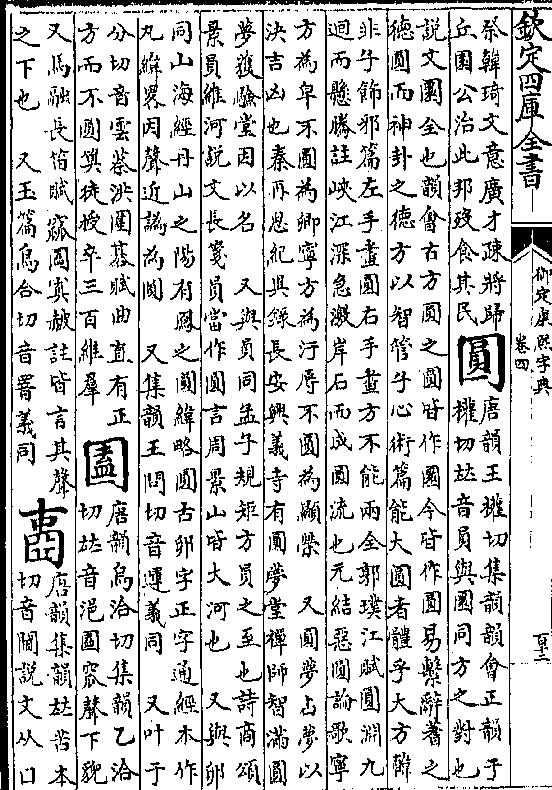 欽定四庫全書
御定康熙字典
卷四
祭韓琦文意廣才疎將歸丘園公治此邦殁食其民
圓
唐韻王權切集韻韻會正韻于權切𠀤音員與圜同方之對也
說文圜全也韻會古方圓之圓皆作圜今皆作圓易繫辭蓍之德圓而神卦之德方以智管子心術篇能大圓者體乎大方韓非子飾邪篇左手畫圓右手畫方不能兩全郭璞江賦圓淵九迴而懸騰註峽江深急激岸石而成圓流也元結惡圓論歌寧方為皁不圓為卿寧方為汙辱不圓為顯榮
又圓夢占夢以決吉凶也秦再思紀異錄長安興義寺有圓夢堂禪師智滿圓夢獲驗堂因以名
又與員同孟子規矩方員之至也詩商頌景員維河說文長箋員當作圓言周景山皆大河也
又與卵同山海經丹山之陽有鳳之圓緯略圓古卵字正字通經本作丸緯畧因聲近譌為圓
又集韻王問切音運義同
又叶于分切音雲蔡洪圍棊賦曲直有正方而不圓算徒授卒三百維羣
𡇼
唐韻烏洽切集韻乙洽切𠀤音浥圔窊聲下貌
又馬融長笛賦窳圔窴赧註皆言其聲之下也
又玉篇烏合切音罯義同
唐韻集韻𠀤苦本切音閫說文从口